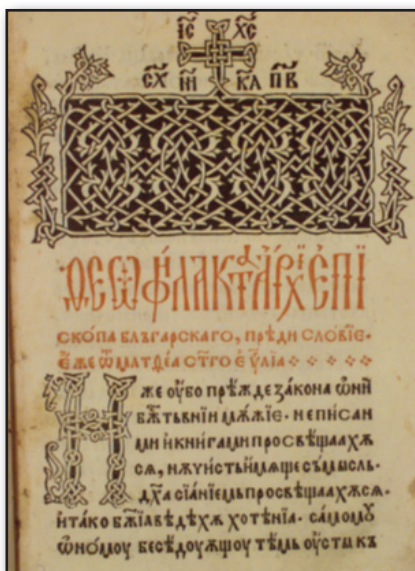 І҃С Х҃С
СХ ІИ КЛ ПВ
ѲЕѠФИЛАКТА АРХЇЕПЇ
скопа блъгарскаго, прѣди словїе·
еже ѿ матѳеа ст҃го еѵ҃лїа
Иже оубо прѣжде закона ѡнїи
бж҃тьвнїи мѫжїе· не писан
ми и книгами просвѣщаахѫ
сѧ, нѫ чисть имѧще съмысль·
дх҃а сїанїемь просвѣщаахѫсѧ·
и тако бж҃їа вѣдѣхѫ хотѣнїа· самомꙋ
ѡномоу бесѣдоуѫщоу тѣмь оусты къ